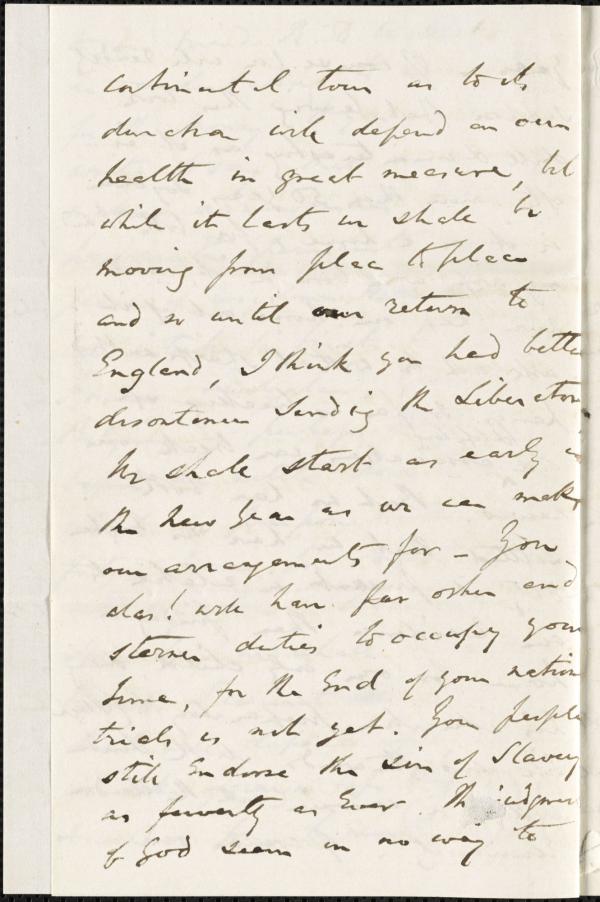 continental tour as to its
duration will depend on our
health in great measure, but
while it lasts we shall be
moving from place to place
and so until our return to
England, I think you had better
discontinue sending the Liberator
We shall start as early in
the New Year as we can make
our arrangements for – You
alas! will have far other and
sterner duties to occupy your
time, for the End of your nation
trials is not yet. Your people
still Endorse the sin of Slavery
as fervently as Ever. The judgment
of God seem in no way to